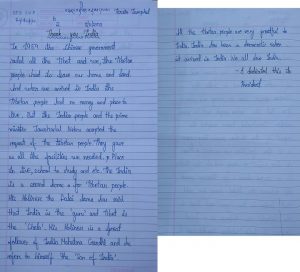 Thank you India
In 1959 the Chinese government
raided all the Tibet and we, the Tibetan
people had to leave our home and land.
And when we arrived in India the
Tibetan people had no money and place to
live. But the Indian people and the prime
minister Jawaharlal Nehru accepted the
request of the Tibetan people. They gave
us all the facilities we needed, a place
to live, school to study and etc. The India
is a second home for Tibetan people.
His Holiness the Dalai Lama has said
that India is the 'guru' and Tibet is
the 'Chela'. His Holiness is a great
follower of India Mahatma Gandhi and he
refers to himself the 'Son of India'.
All the Tibetan people are very grateful to
India. India has been a democratic nation
at in India. We all love India.
- I dedicated this to